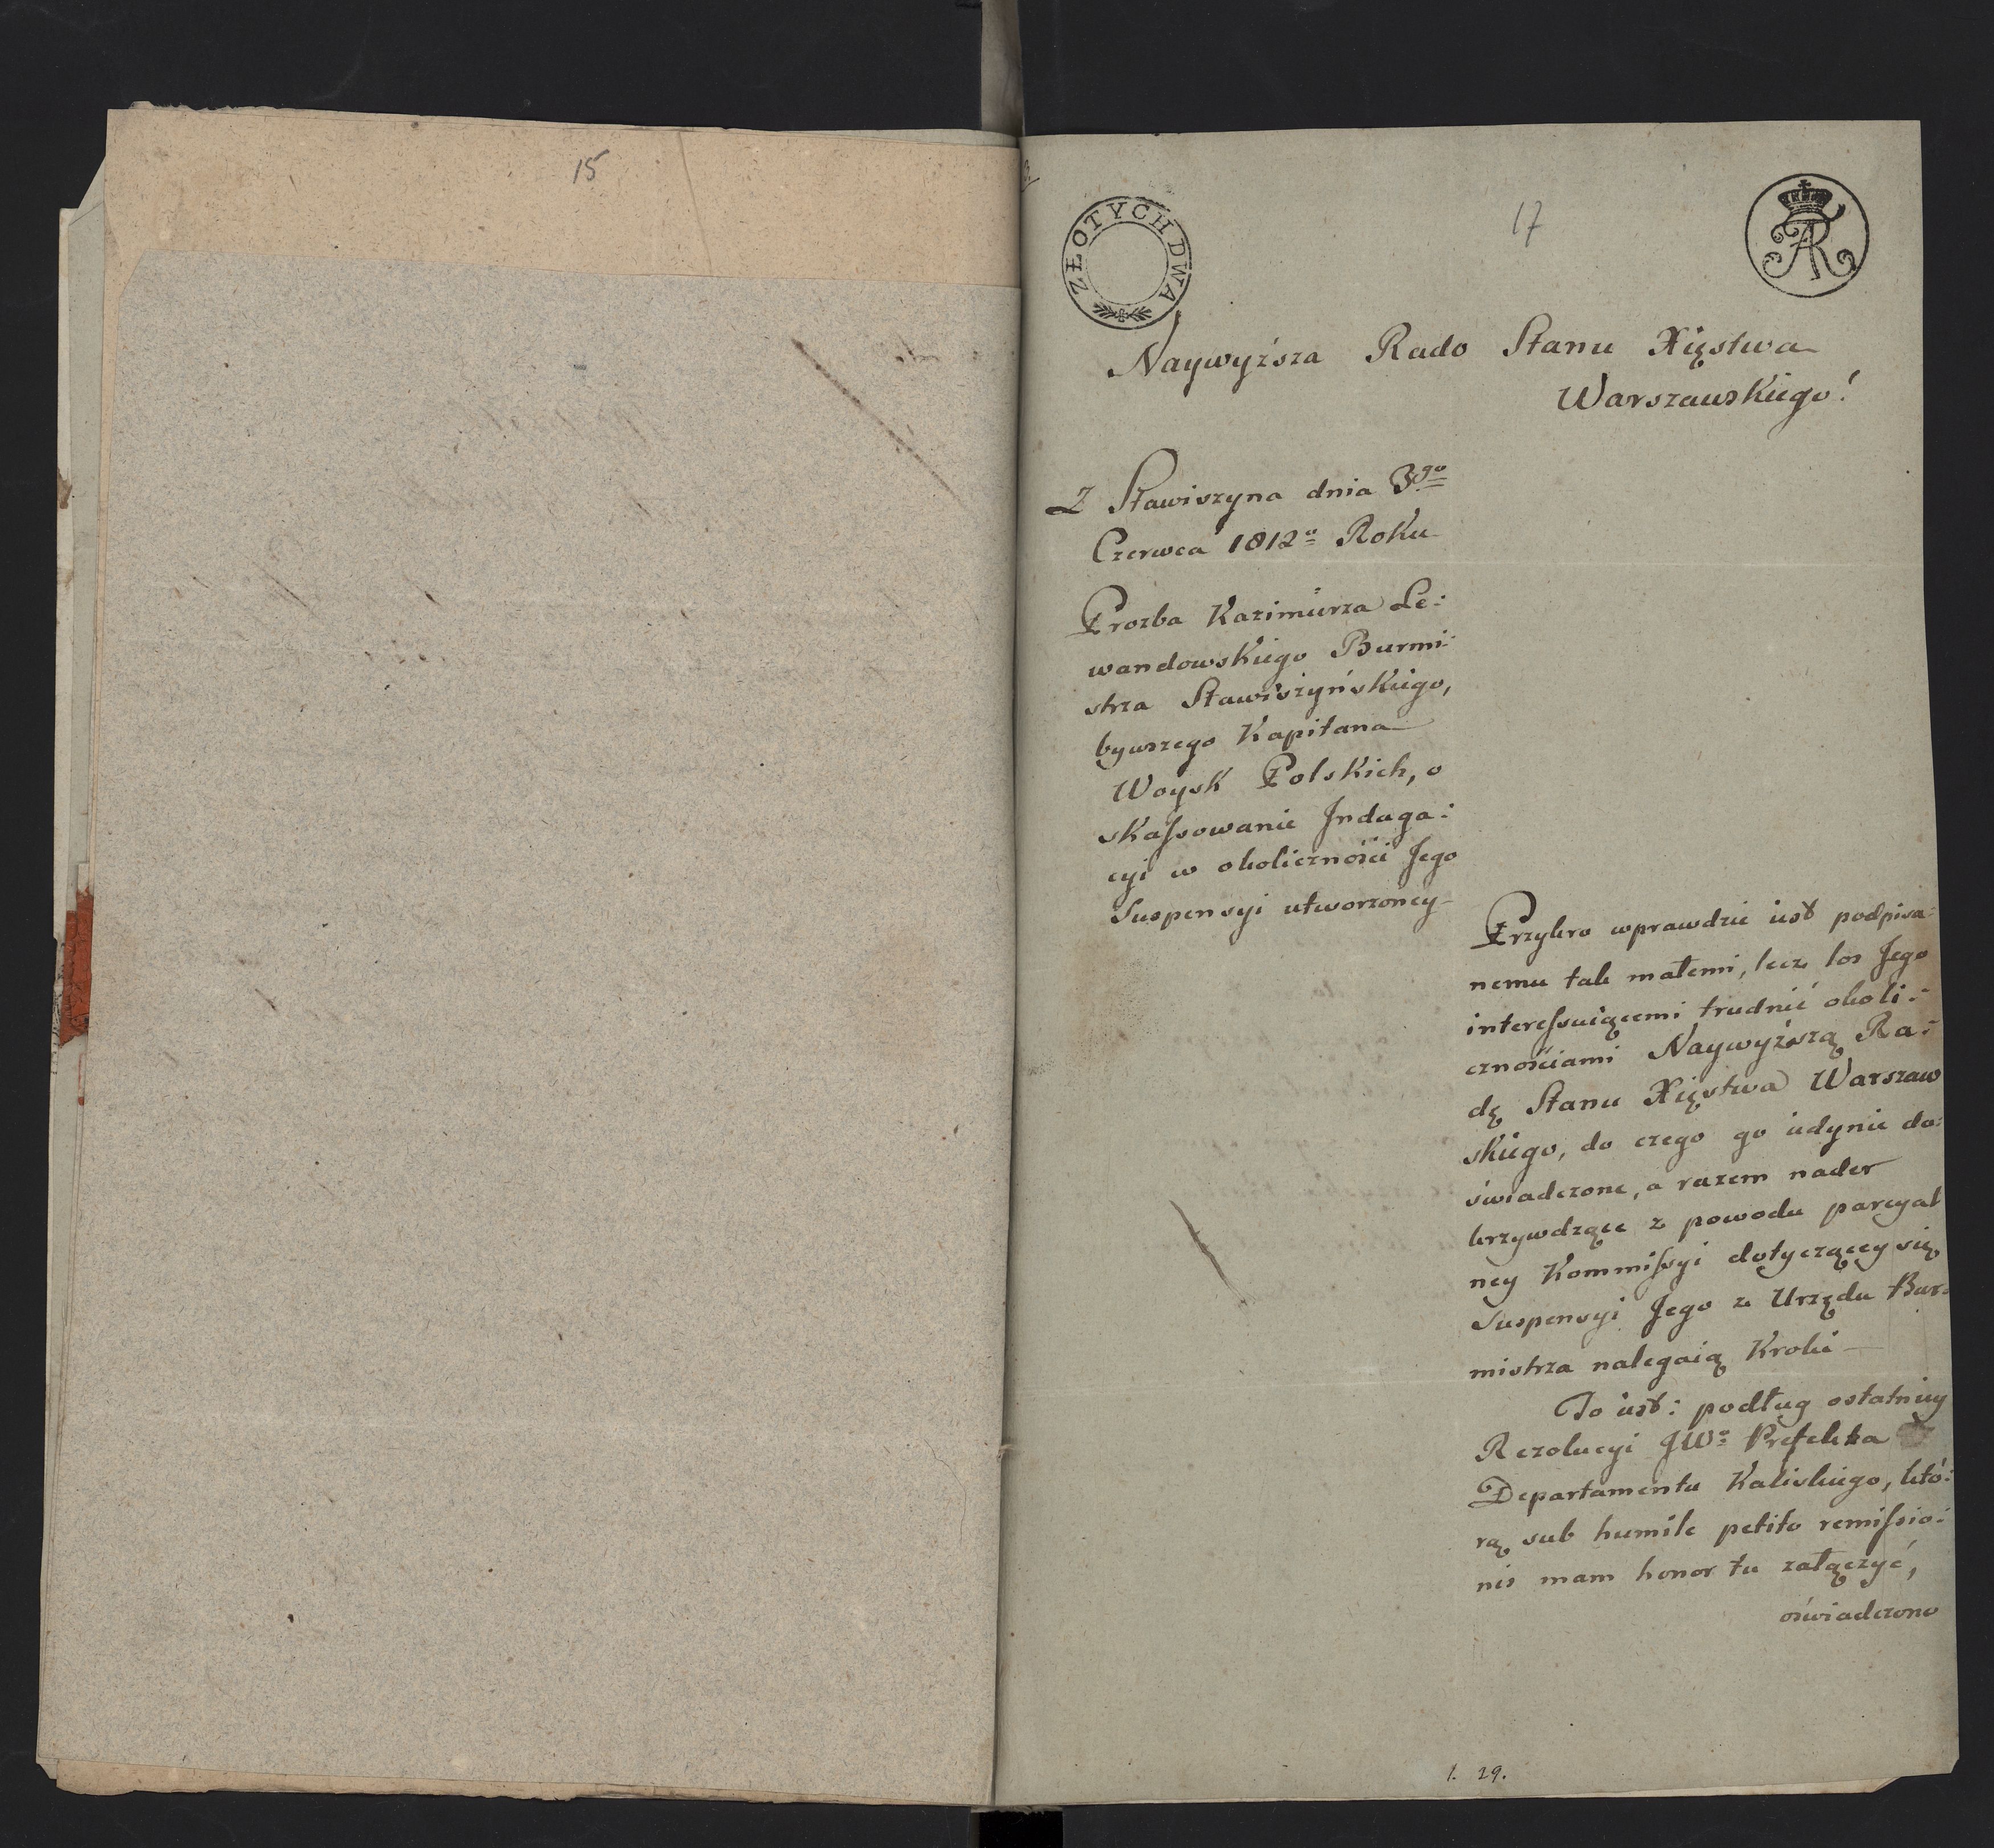 15
17
ZŁOTYCH DWA
AR
Naywyższa Rado Stanu Xięstwa
Warszawskiego!
Z Stawiszyna dnia 3go
Czerwca 1812o Roku
Prozba Kazimierza Le:
wandowskiego Burmi:
strza Stawiszyńskiego,
bywszego Kapitana
Woysk Polskich, o
skassowanie Indaga:
cyi w okoliczności Jego
Suspensyi utworzoney
Przykro wprawdzie iest podpisa:
nemu tak małemi, lecz los Jego
interessuiącemi trudnić okoli:
cznościami Naywyższą Ra:
dę Stanu Xięstwa Warszaw
skiego, do czego go iedynie do:
świadczone, a razem nader
krzywdzące z powodu parcyal
ney Kommissyi dotyczącey się
Suspensyi Jego z Urzędu Bur:
mistrza nalegaią Kroki
To iest: podług ostatniey
Rezolucyi JWo Prefekta
Departamentu Kaliskiego, któ:
rą sub humile petito remissio:
nis mam honor tu załączyć,
oświadczono
1. 29.